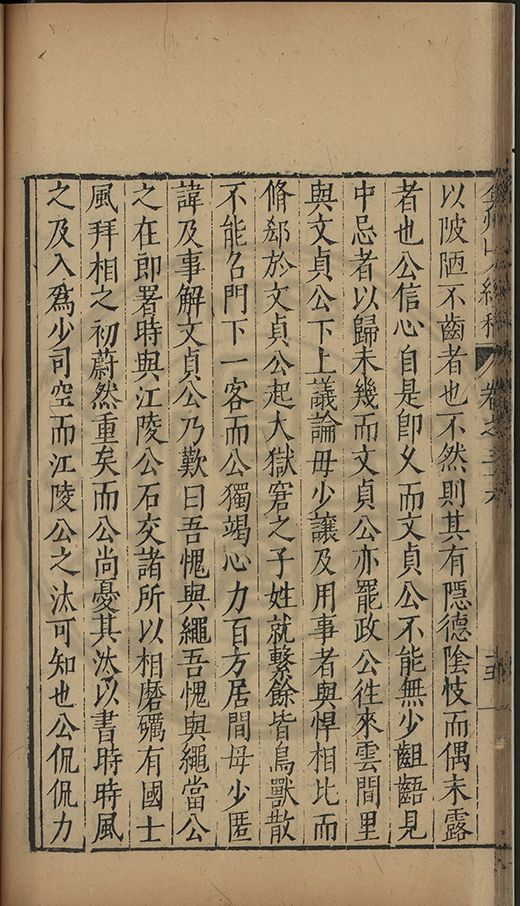 以陂陋不齒者也不然則其有隱德陰忮而偶未露
者也公信心自是卽父而文貞公不能無少齟齬見
中忌者以歸未幾而文貞公亦罷政公徃來雲間里
與文貞公下上議論毋少讓及用事者與悍相比而
脩郄於文貞公起大獄窘之子姓就繫餘皆鳥獸散
不能名門下一客而公獨竭心力百方居間毋少匿
諱及事解文貞公乃歎曰吾愧與繩吾愧與繩當公
之在郎署時與江陵公石交諸所以相磨礪有國士
風拜相之初蔚然重矣而公尚憂其汰以書時時風
之及入爲少司空而江陵公之汰可知也公侃侃力
卷之三